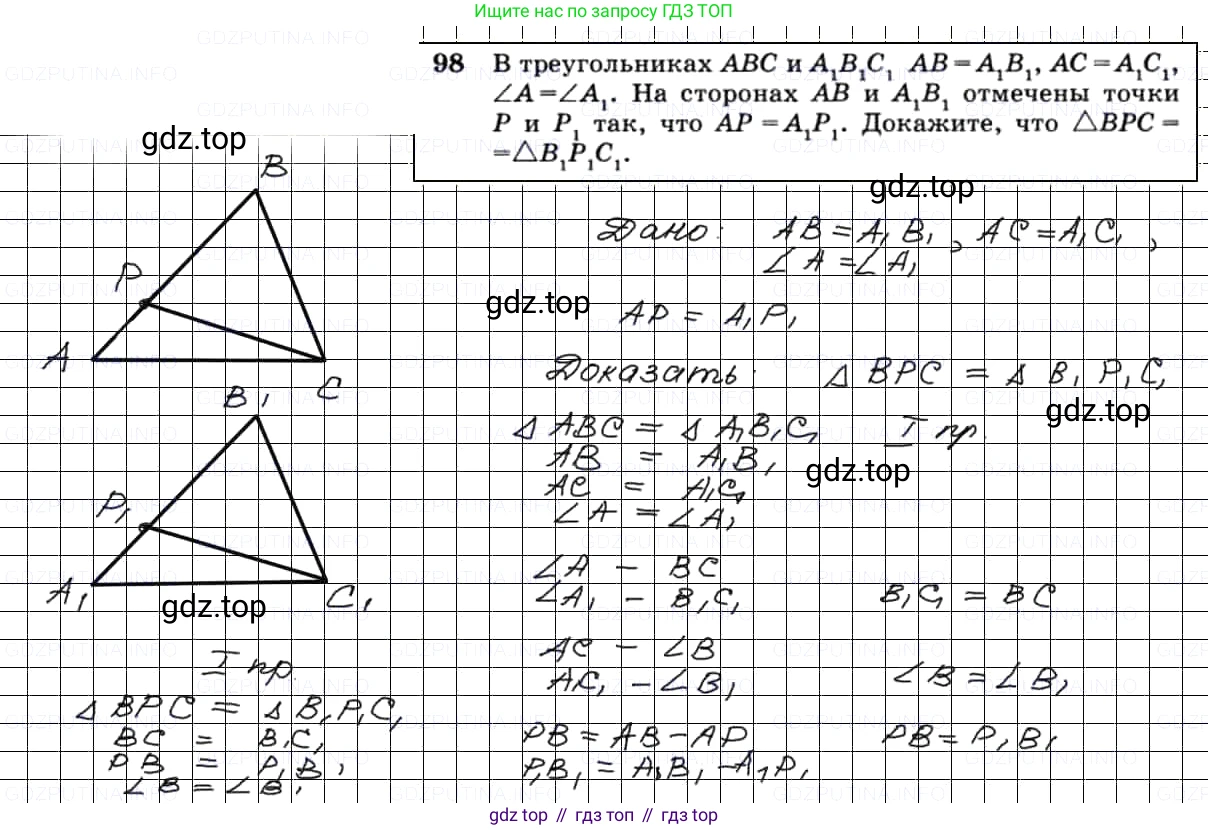 Ищите нас по запросу ГДЗ ТОП
98 В треугольниках ABC и A₁B₁C₁ AB = A₁B₁, AC = A₁C₁,
∠A = ∠A₁. На сторонах AB и A₁B₁ отмечены точки
P и P₁ так, что AP = A₁P₁. Докажите, что △BPC =
= △B₁P₁C₁.
gdz.top
gdz.top
B
P
A
C
Дано: AB = A₁B₁, AC = A₁C₁,
∠A = ∠A₁
gdz.top
AP = A₁P₁
Доказать: △BPC = △B₁P₁C₁
gdz.top
B₁
P₁
A₁
C₁
gdz.top
△ABC = △A₁B₁C₁ I пр.
AB = A₁B₁
gdz.top
AC = A₁C₁
∠A = ∠A₁
∠A – BC
∠A₁ – B₁C₁ B₁C₁ = BC
AC – ∠B
A₁C₁ – ∠B₁ ∠B = ∠B₁
PB = AB – AP PB = P₁B₁
P₁B₁ = A₁B₁ – A₁P₁
I пр.
△BPC = △B₁P₁C₁
BC = B₁C₁
PB = P₁B₁
∠B = ∠B₁
gdz top // гдз топ // gdz top